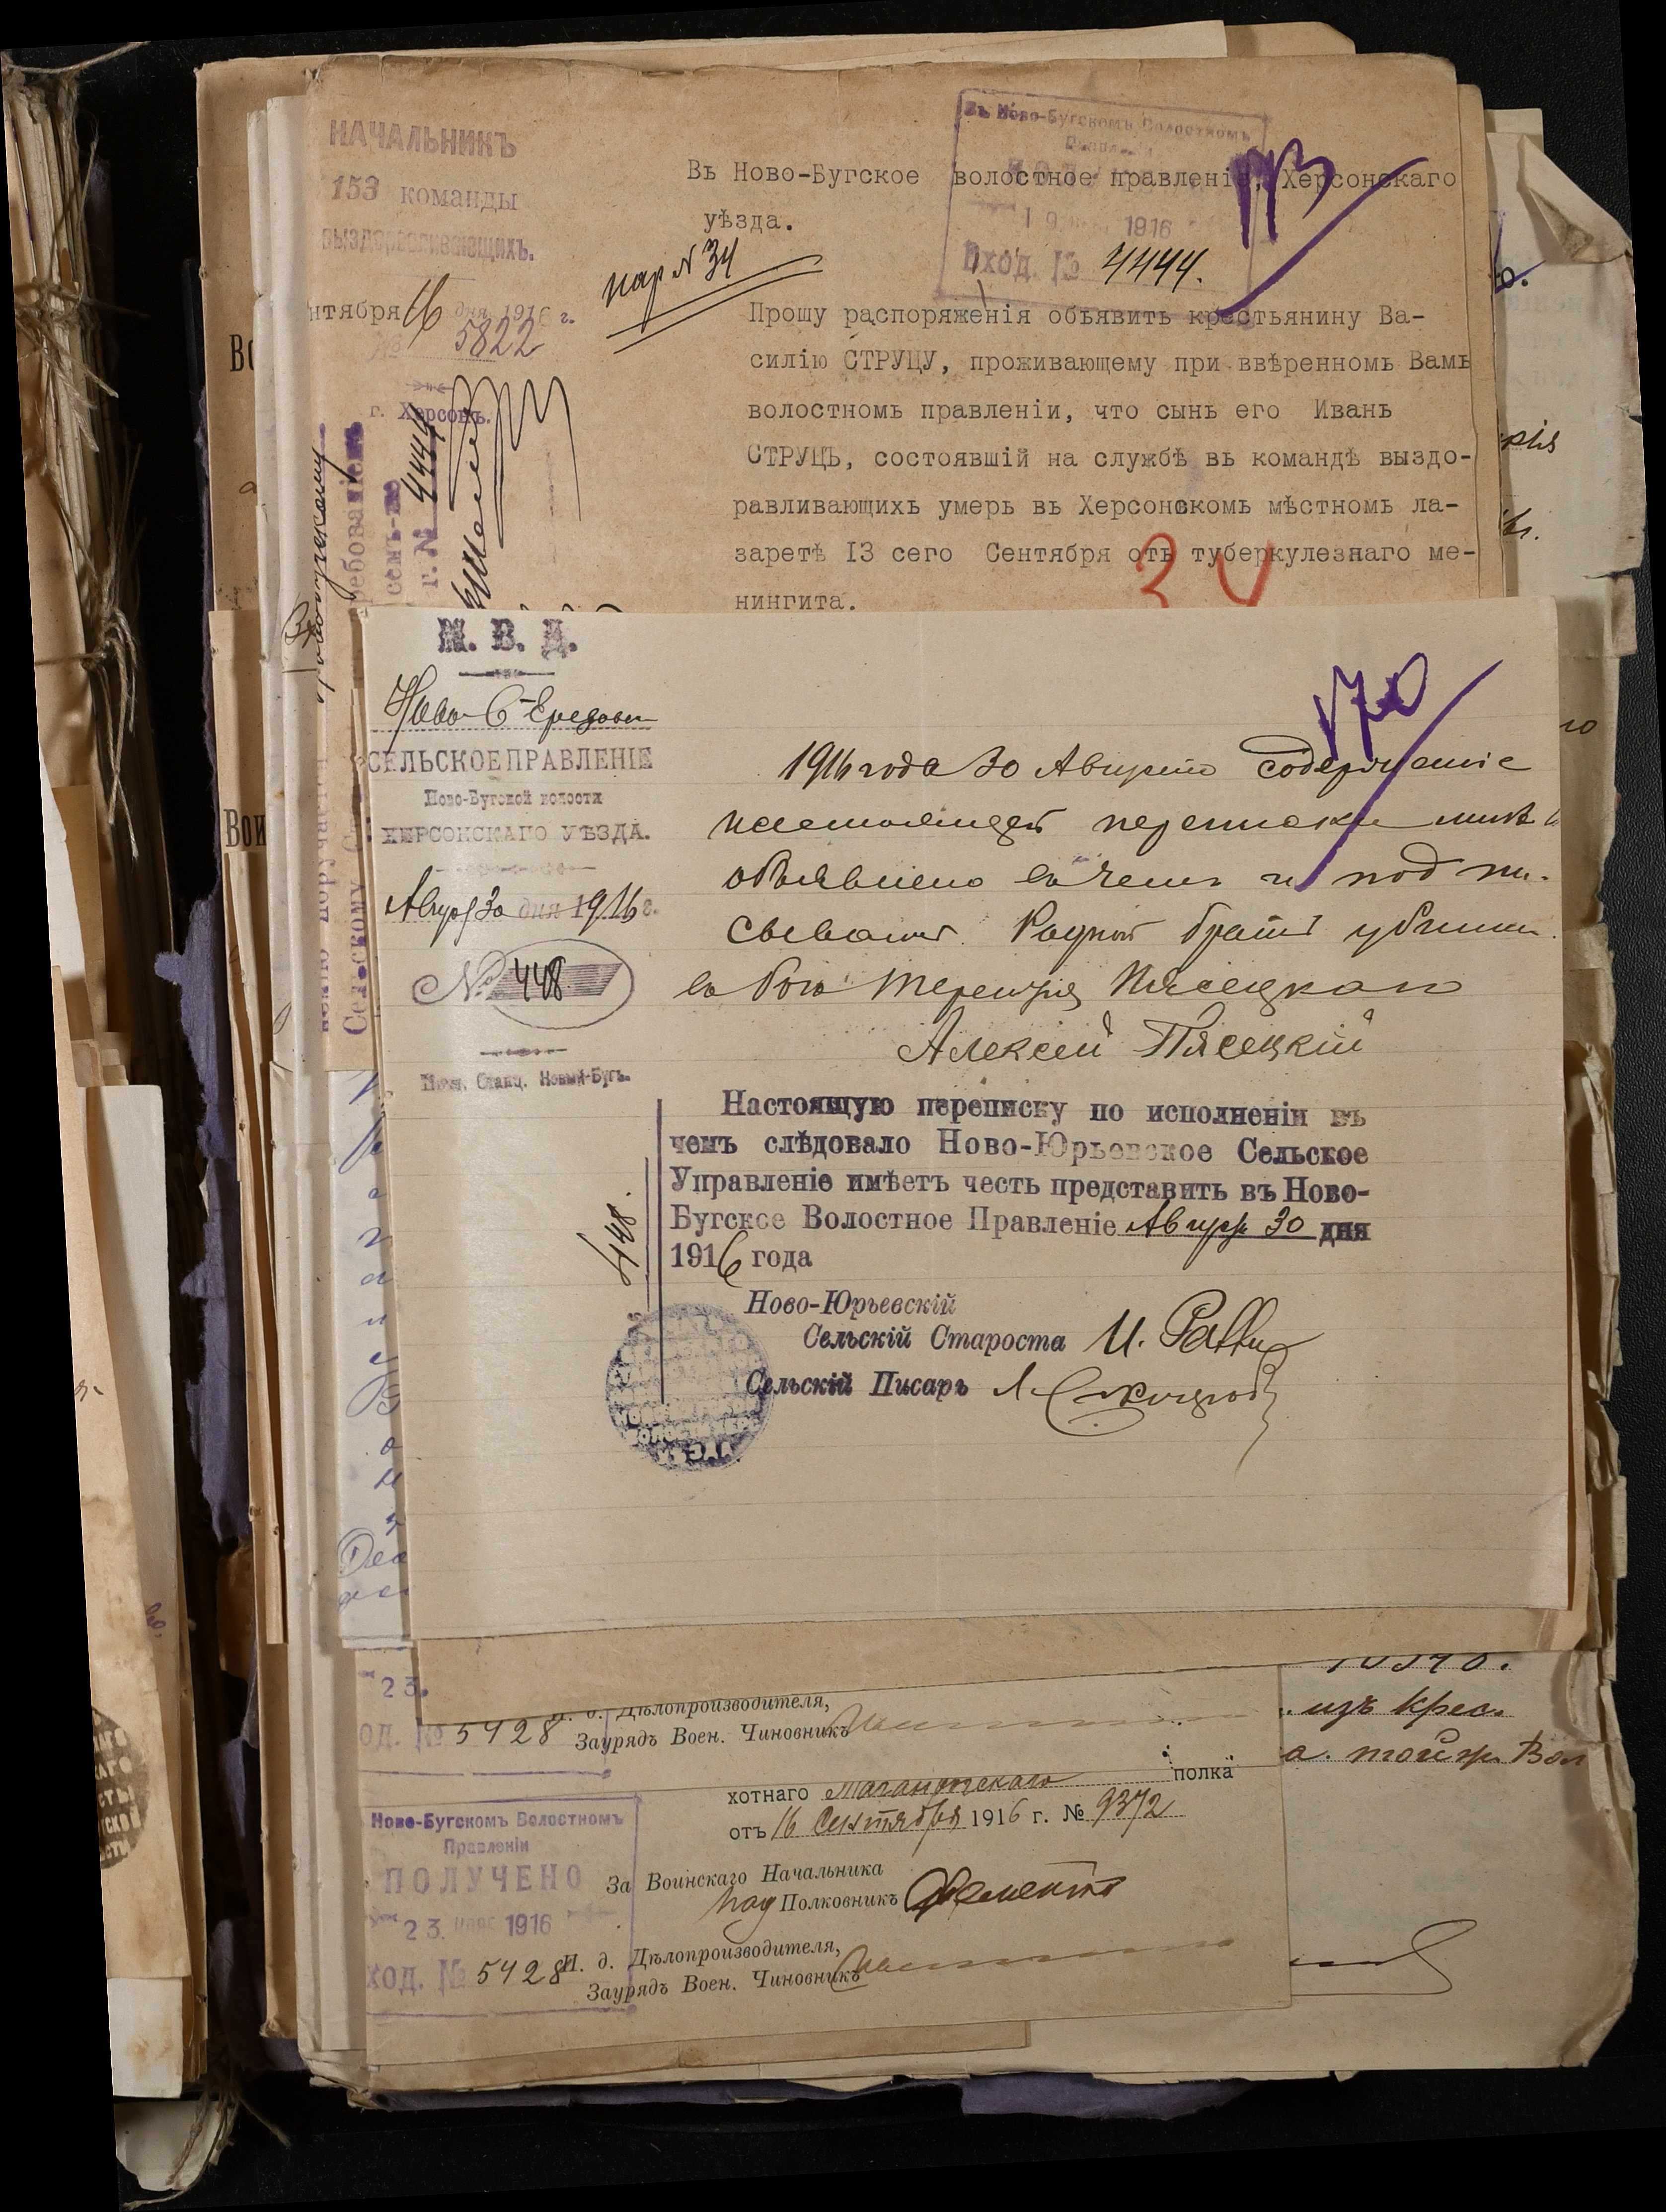 НАЧАЛЬНИКЪ
153 команды
выздоравливающихъ.
нтября 16 дня 1916 г.
№ 5822
г. Херсонъ.
Въ Ново-Бугскомъ Волостномъ
1916
Вход. № 4444.
Въ Ново-Бугское волостное правленіе, Херсонскаго
уѣзда.
нар № 34
Прошу распоряженія объявить крестьянину Ва-
силію СТРУЦУ, проживающему при ввѣренномъ Вамъ
волостномъ правленіи, что сынъ его Иванъ
СТРУЦЪ, состоявшій на службѣ въ командѣ выздо-
равливающихъ умеръ въ Херсонскомъ мѣстномъ ла-
заретѣ 13 сего Сентября отъ туберкулезнаго ме-
нингита.
г. № 4444
Сельскому
М. В. Д.
СЕЛЬСКОЕ ПРАВЛЕНІЕ
Ново-Бугской волости
ХЕРСОНСКАГО УѢЗДА.
Август 30 дня 1916 г.
№ 448
Почт. Станц. Новый-Бугъ.
170
1916 года 30 Августа содержаніе
настоящей переписки мнѣ
объявлено въ чемъ и под пи-
сываюсь. Родной братъ убитаго
въ бою Терентія Пясецкаго
Алексѣй Пясецкій
Настоящую переписку по исполненіи въ
чемъ слѣдовало Ново-Юрьевское Сельское
Управленіе имѣетъ честь представить въ Ново-
Бугское Волостное Правленіе Август 30 дня
1916 года
448.
Ново-Юрьевскій
Сельскій Староста И.
Сельскій Писарь
23.
ОД. № 5428
Дѣлопроизводителя,
Заурядъ Воен. Чиновникъ
изъ крес.
а. той ж. Вол
хотнаго полка
отъ 16 Сентября 1916 г. № 9372
Ново-Бугскомъ Волостномъ
Правленіи
ПОЛУЧЕНО
23 нояб 1916
ХОД. № 5428
За Воинскаго Начальника
Под Полковникъ
И. д. Дѣлопроизводителя,
Заурядъ Воен. Чиновникъ